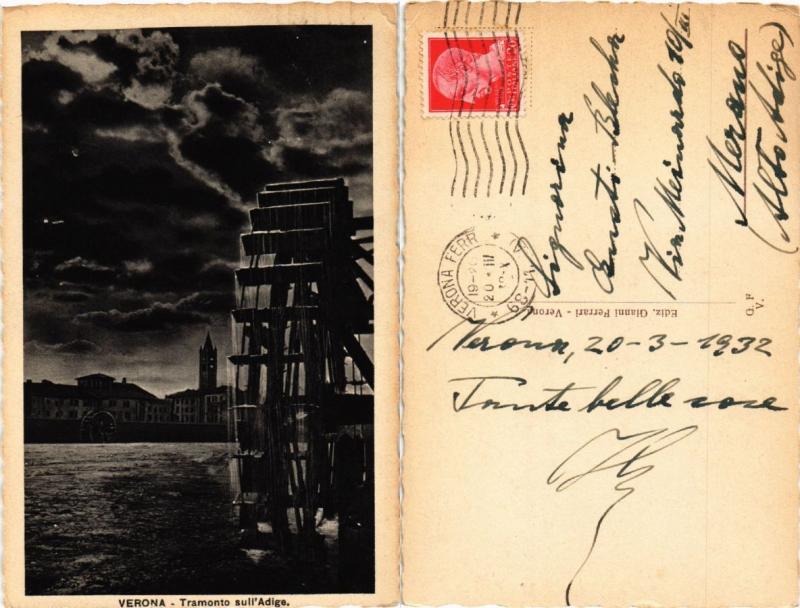 VERONA - Tramonto sull'Adige.
VERONA FERR
19-20
20 III
Signorina
Via Meinardo 10/III
Merano
(Alto Adige)
Ediz. Gianni Ferrari - Verona
G. F.
V.
Verona, 20-3-1932
Tante belle cose